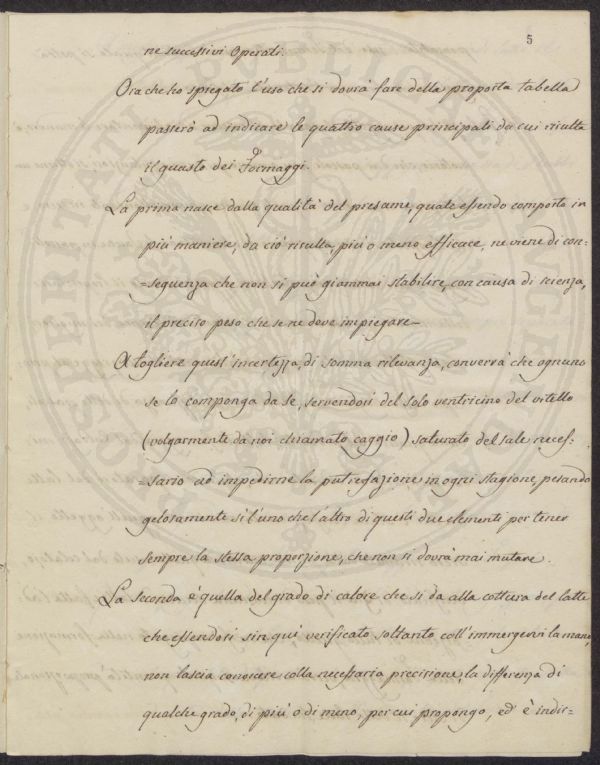 5
ne successivi Operati.
Ora che ho spiegato l'uso che si dovrà fare della proposta tabella
passerò ad indicare le quattro cause principali da cui risulta
il guasto dei Formaggi.
La prima nasce dalla qualità del presame, quale essendo composto in
più maniere, da ciò risulta, più o meno efficace, ne viene di con=
=seguenza che non si può giammai stabilire, con causa di scienza,
il preciso peso che se ne deve impiegare_
A togliere quest'incertezza, di somma rilevanza, converrà che ognuno
se lo componga da se, servendosi del solo ventricino del vitello
(volgarmente da noi chiamato caggio) saturato del sale neces=
=sario ad impedirne la putrefazione in ogni stagione, pesando
gelosamente sì l'uno che l'altro di questi due elementi per tener
sempre la stessa proporzione, che non si dovrà mai mutare.
La seconda è quella del grado di calore che si da alla cottura del latte
che essendosi sin quì verificato soltanto coll'immergervi la mano,
non lascia conoscere colla necessaria precisione, la differenza di
qualche grado, di più o di meno, per cui propongo, ed è indis=